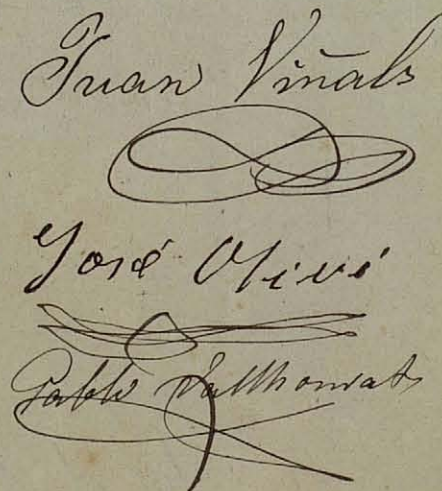 Juan Viñals
José Olivé
Pablo Vallhonrat